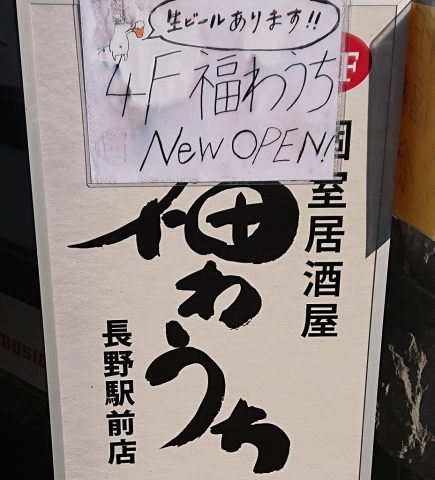 生ビールあります!!
4F 福わうち
New OPEN!!
F
個室居酒屋
福わうち
長野駅前店
MUSIC